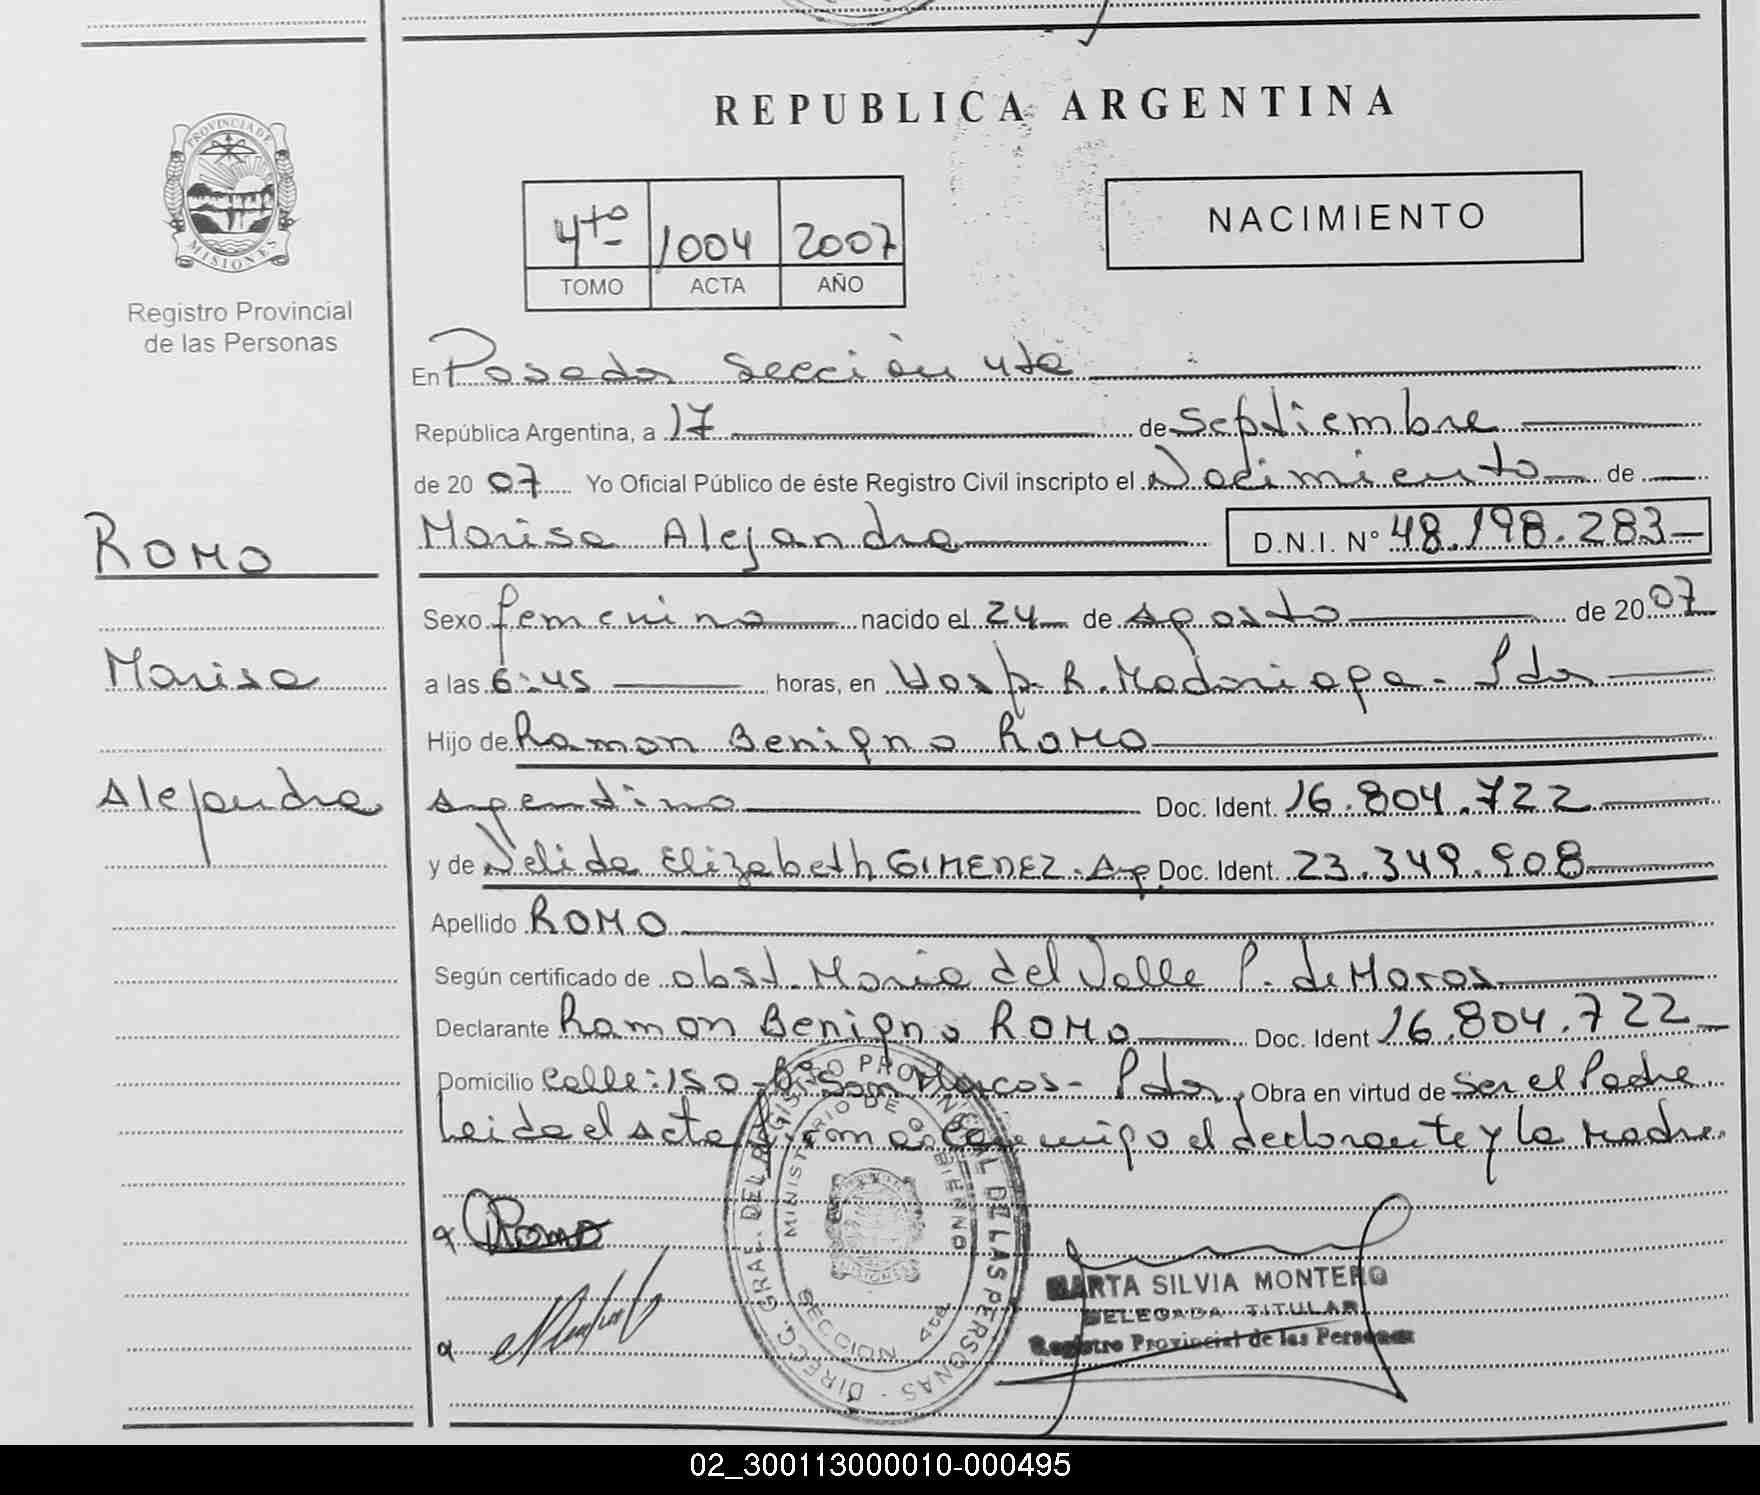 REPUBLICA ARGENTINA
PROVINCIA DE
MISIONES
Registro Provincial
de las Personas
4to 1004 2007
TOMO ACTA AÑO
NACIMIENTO
En Posadas Sección 4ta
República Argentina, a 17 de Septiembre
de 2007 Yo Oficial Público de éste Registro Civil inscripto el Nacimiento de
Marisa Alejandra D.N.I. N° 48.198.283
ROMO
Marisa
Alejandra
Sexo femenino nacido el 24 de Agosto de 2007
a las 6:45 horas, en Hosp. R. Madariaga - Pdas
Hijo de Ramon Benigno ROMO
Argentino Doc. Ident. 16.804.722
y de Nelida Elizabeth GIMENEZ. Arg. Doc. Ident. 23.349.908
Apellido ROMO
Según certificado de obst. Maria del Valle P. de Moras
Declarante Ramon Benigno ROMO Doc. Ident 16.804.722
Domicilio Calle: 150 - B° San Marcos - Pdas Obra en virtud de Ser el Padre
Leida el acta firman conmigo el declarante y la madre.
Romo
DIRECC. GRAL. DEL REGISTRO PROVINCIAL DE LAS PERSONAS
MINISTERIO DE GOBIERNO
SECCION 4ta
MISIONES
MARTA SILVIA MONTERO
DELEGADA TITULAR
Registro Provincial de las Personas
02_300113000010-000495